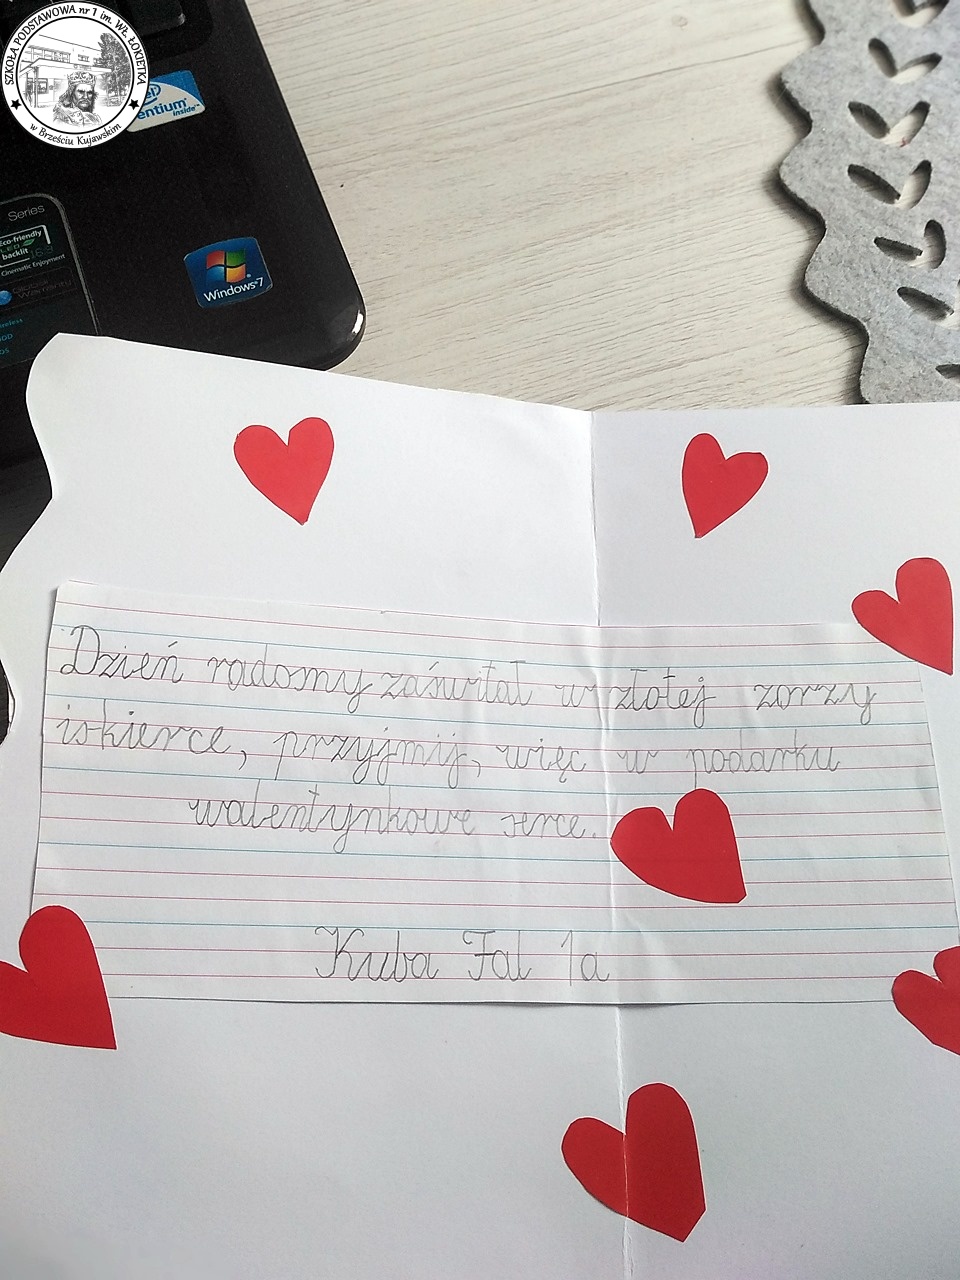 SZKOŁA PODSTAWOWA nr 1 im. WŁ. ŁOKIETKA
w Brześciu Kujawskim
intel
pentium
inside™
Series
Eco-friendly
LED
backlit 16:9
Cinematic Enjoyment
Windows 7
Dzień radomy zaświtał w złotej zorzy
iskierce, przyjmij, więc w podarku
walentynkowe serce.
Kuba Fal 1a